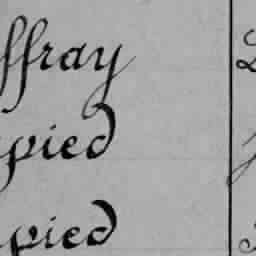 ffray
pied
pied